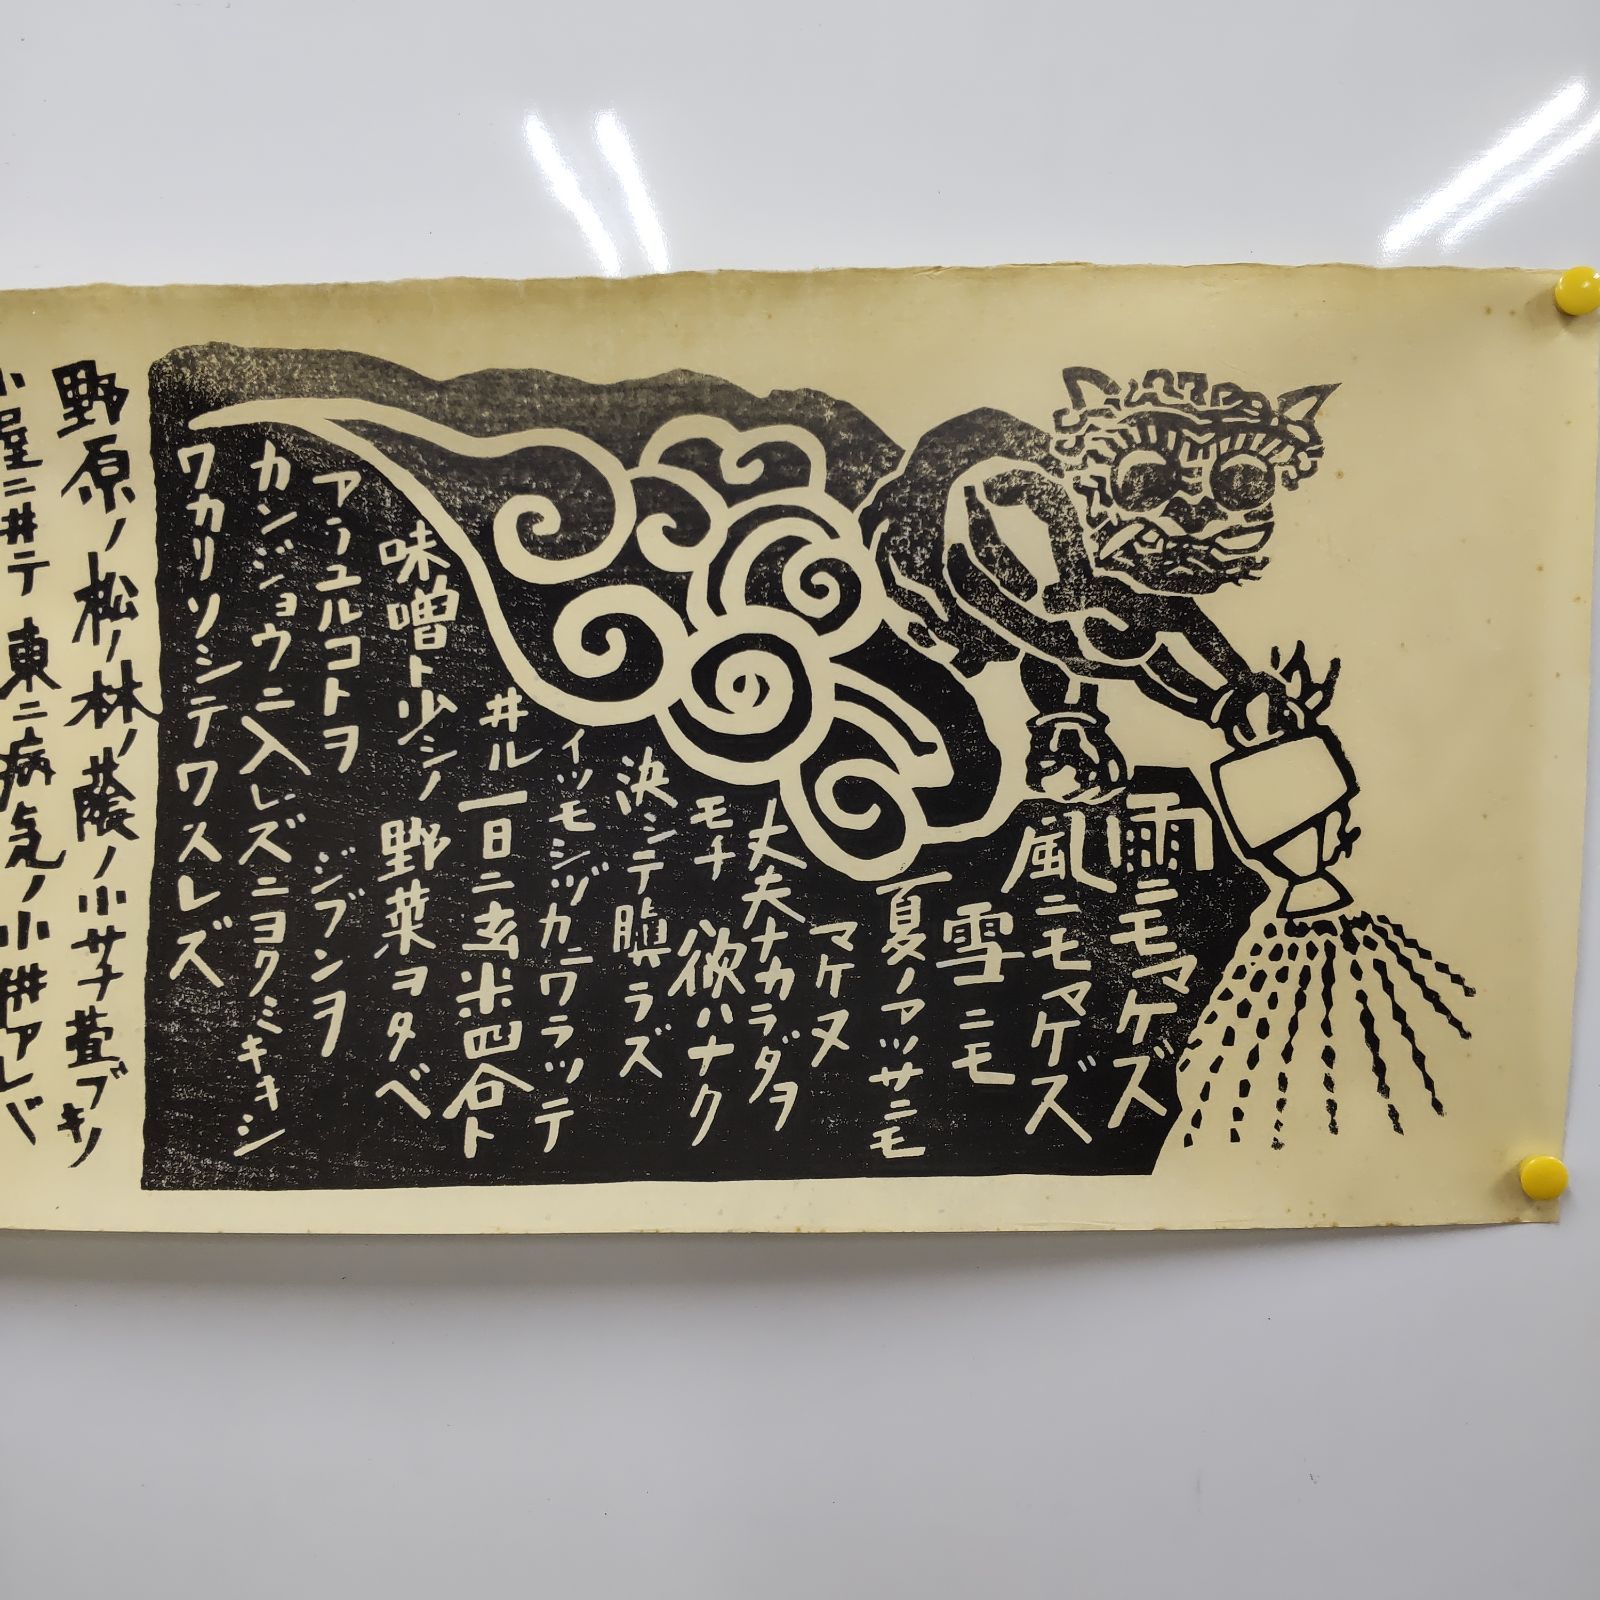 雨ニモマケズ
風ニモマケズ
雪ニモ
夏ノアツサニモ
マケヌ
丈夫ナカラダヲ
モチ 欲ハナク
決シテ瞋ラズ
イツモシヅカニワラッテ
井ル 一日ニ玄米四合ト
味噌ト少シノ 野菜ヲタベ
アラユルコトヲ ジブンヲ
カンジョウニ入レズニヨクミキキシ
ワカリソシテワスレズ
野原ノ松ノ林ノ蔭ノ小サナ萱ブキノ
小屋ニ井テ 東ニ病気ノ小供アレバ